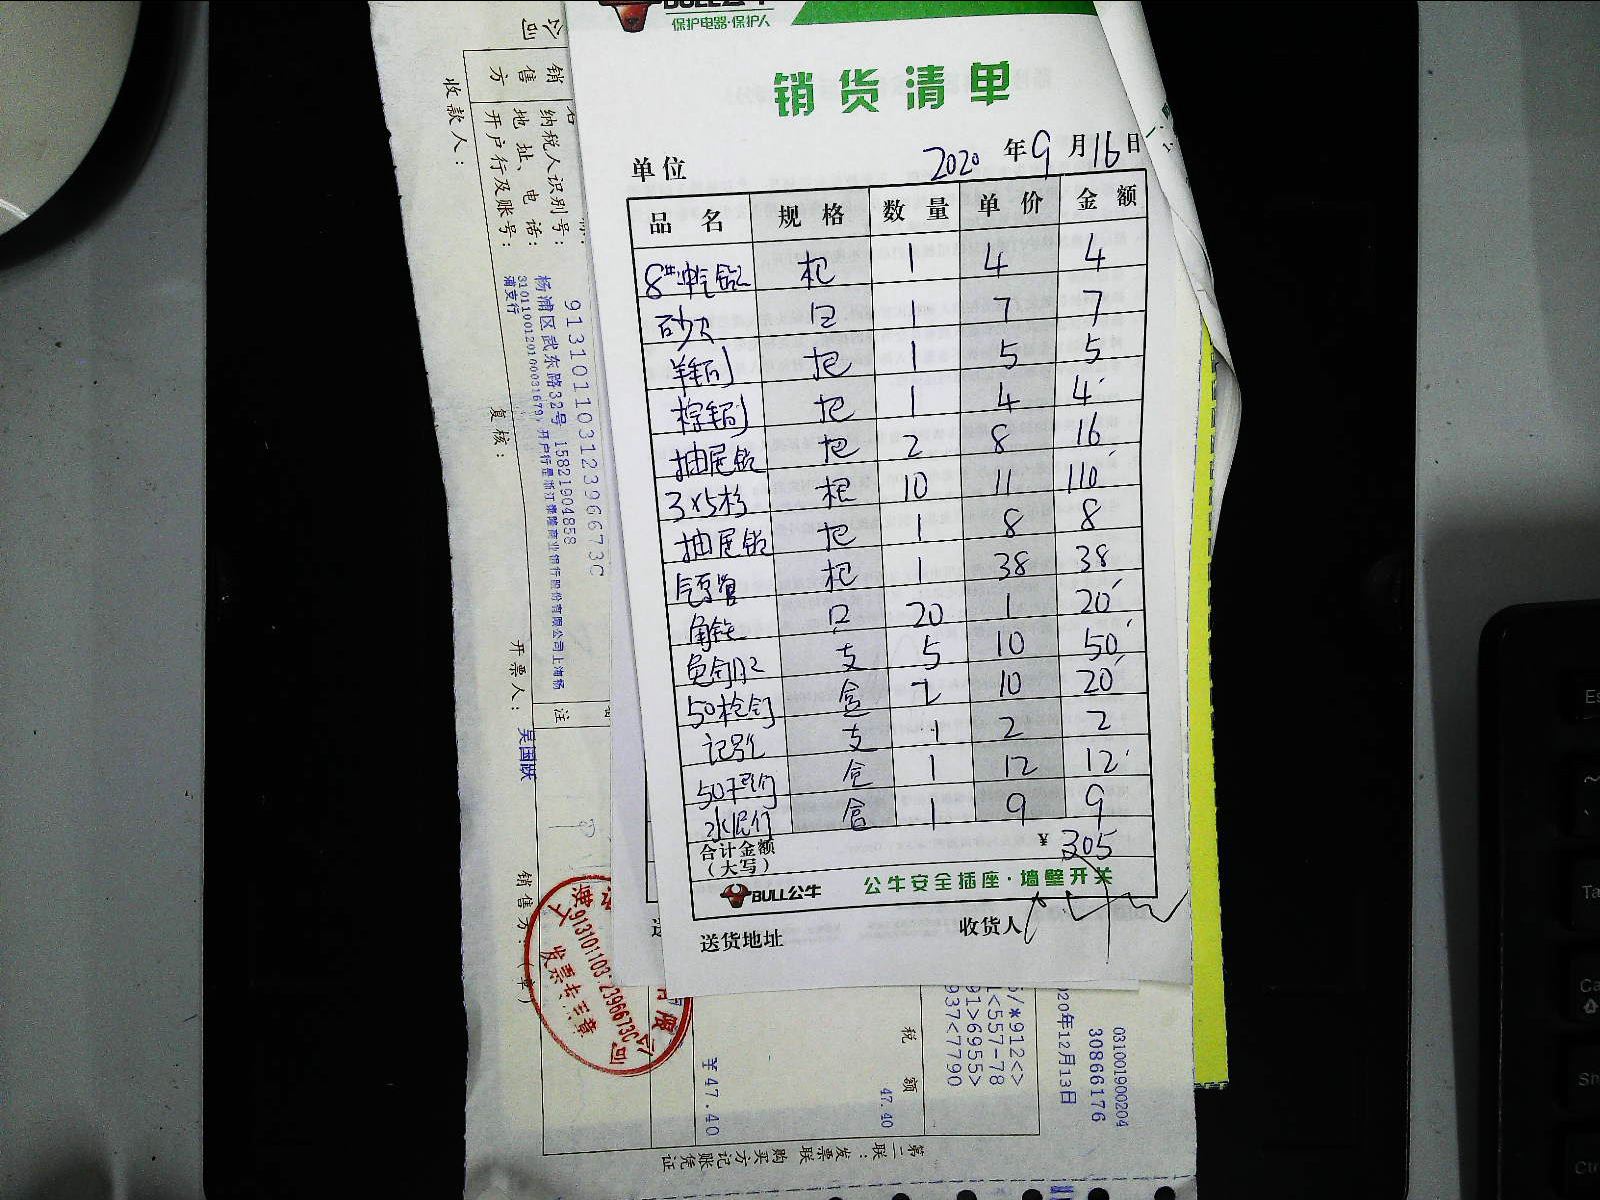 BULL公牛
保护电器·保护人
销货清单
单位 2020 年 9 月 16 日
品名 规格 数量 单价 金额
8#冲气钻 把 1 4 4
砂贝 1 7 7
羊毛刷 把 1 5 5
棕毛刷 把 1 4 4
抽屉锁 把 2 8 16
3×5杉 根 10 11 110
抽屉锁 把 1 8 8
把 1 38 38
角铁 只 20 1 20
免钉胶 支 5 10 50
50枪钉 盒 2 10 20
记号笔 支 1 2 2
50 盒 1 12 12
水泥钉 盒 1 9 9
合计金额(大写) ¥ 305
BULL公牛 公牛安全插座·墙壁开关
送货地址 收货人
销售方
纳税人识别号: 91310110312396673C
地址、电话: 杨浦区武东路32号 15821904858
开户行及账号: 31011001201000031679,开户行是浙江泰隆商业银行股份有限公司上海杨浦支行
收款人:
复核:
开票人: 吴国跃
销售方:(章)
注
上海
91310110312396673C
发票专用章
有限公司
税额
47.40
¥47.40
/*912<>
1<557-78
91>6955>
937<7790
03100190 0204
30866176
2020年12月13日
第二联:发票联 购买方记账凭证